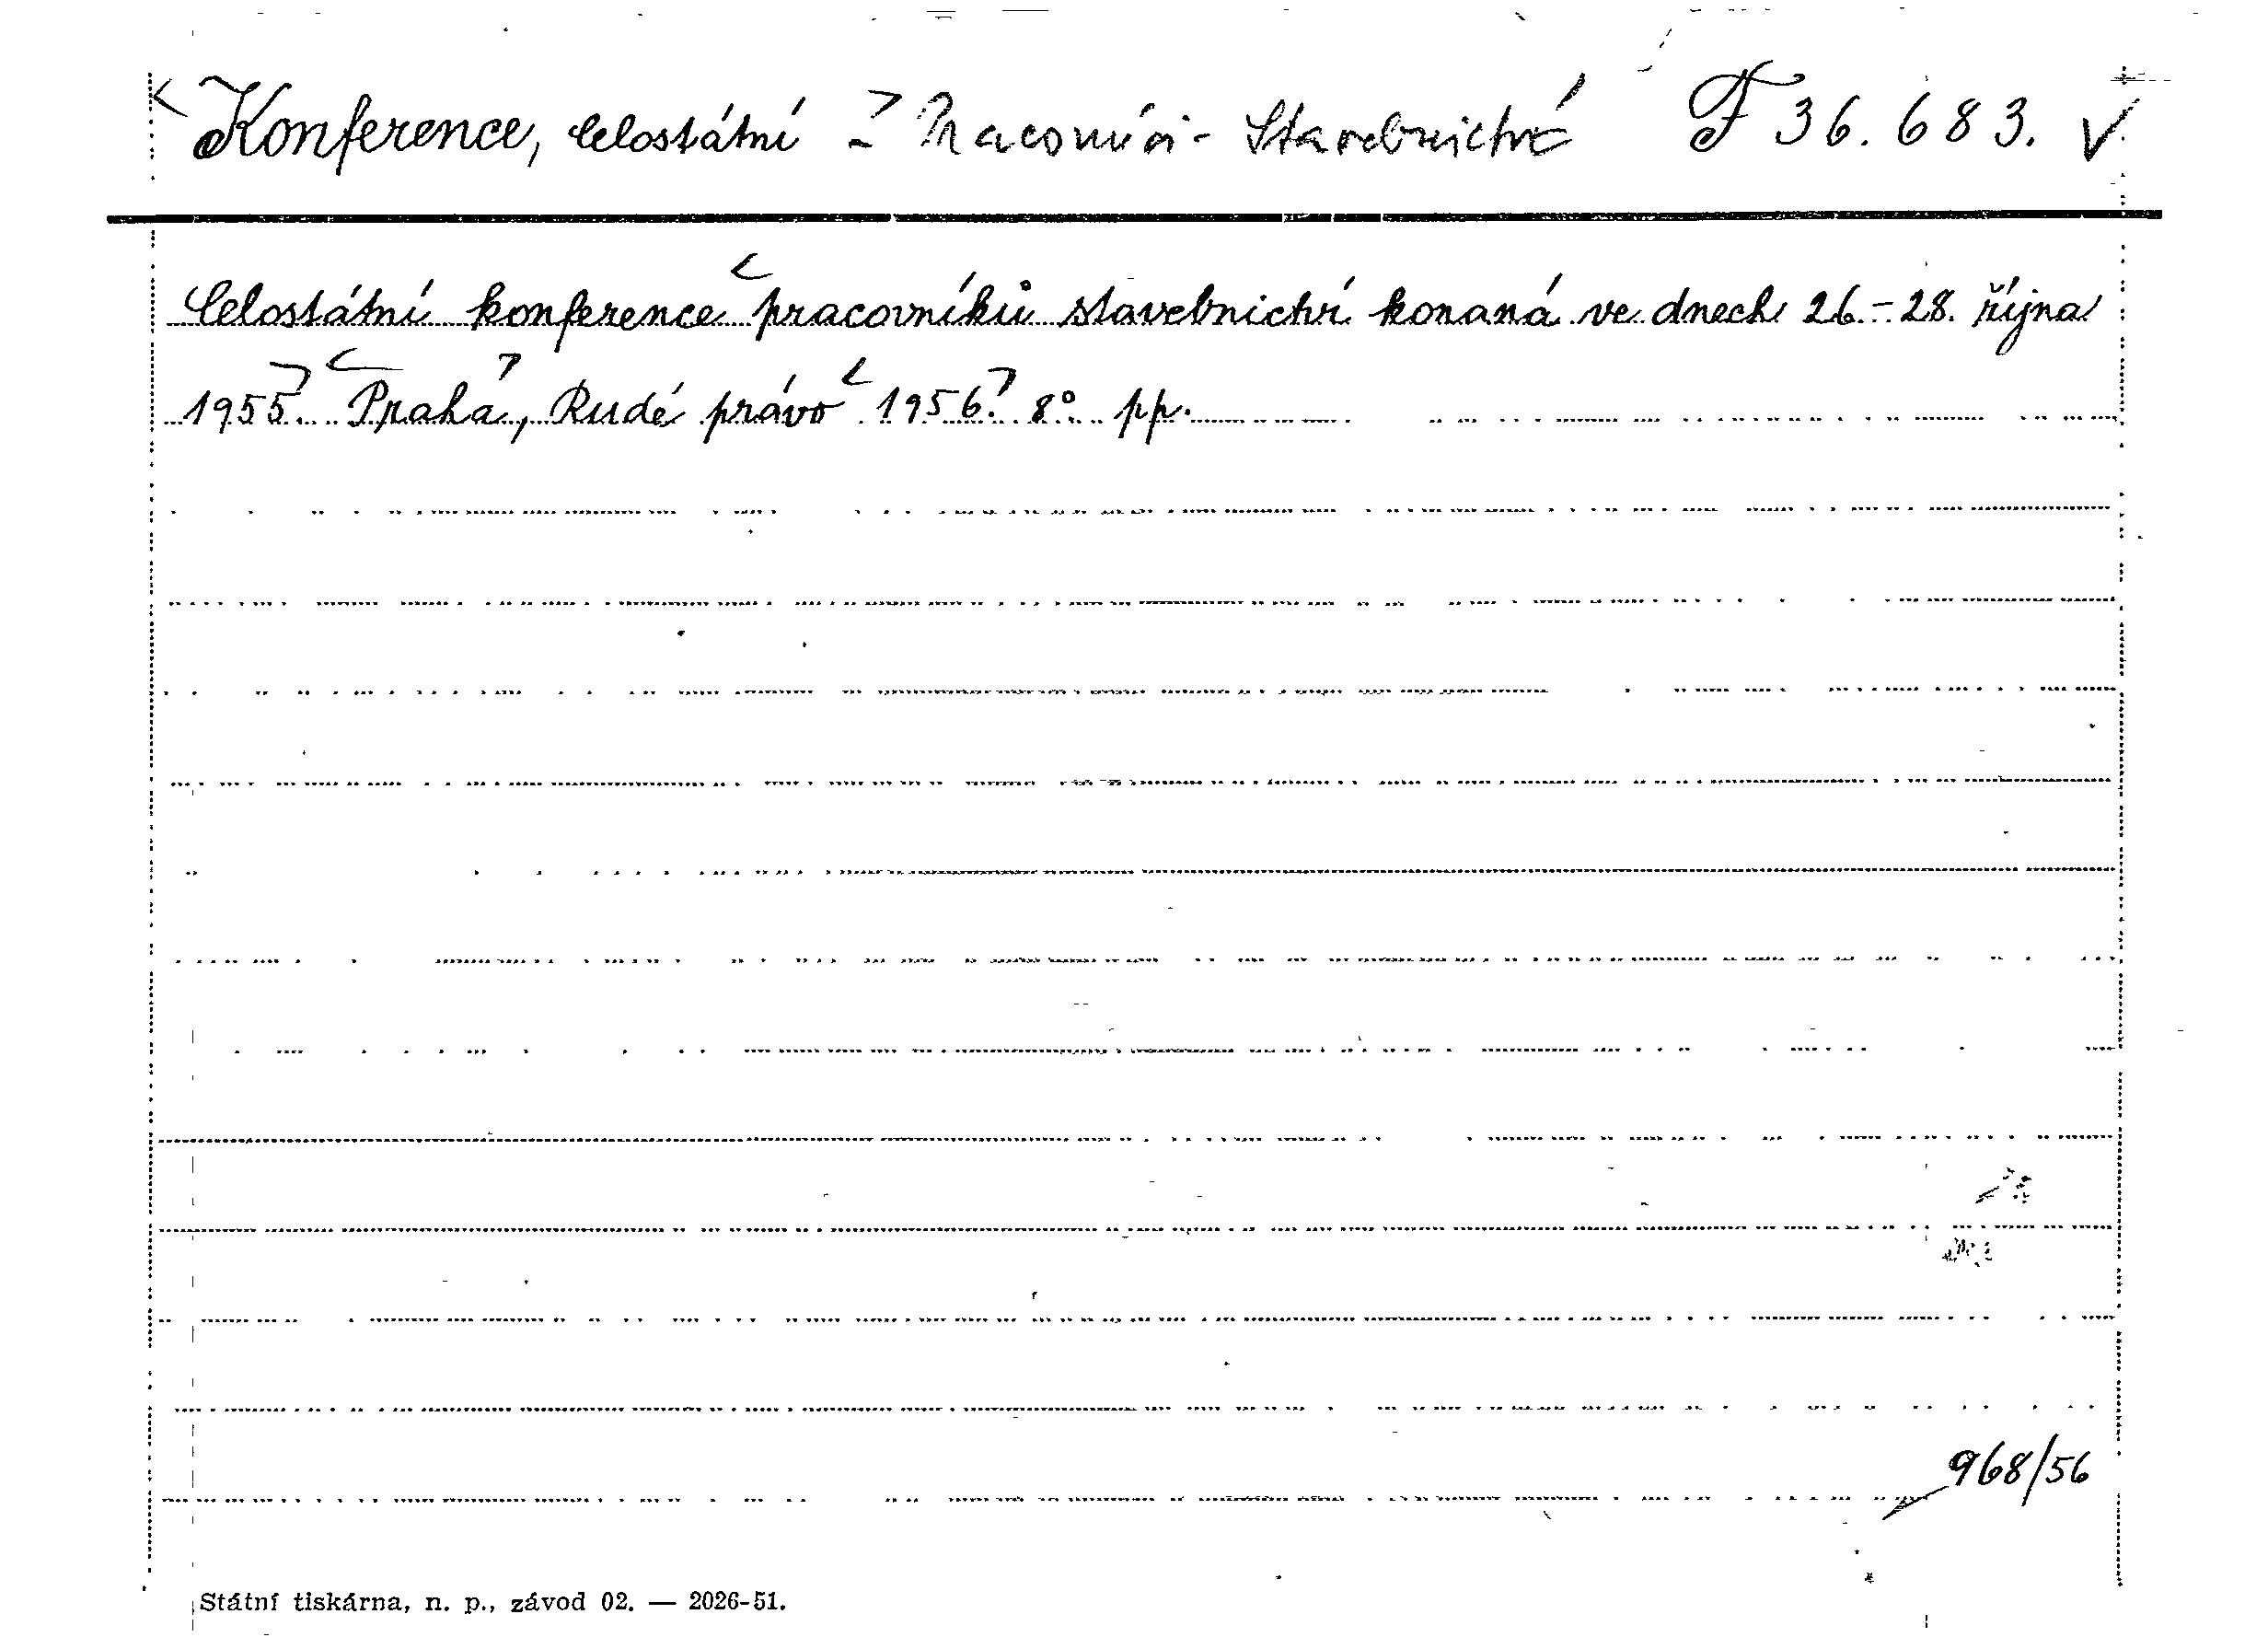 Konference, celostátní - Pracovníci - Stavebnictví F 36.683. V
Celostátní konference pracovníků stavebnictví konaná ve dnech 26.-28. října
1955. Praha, Rudé právo 1956. 8°. pp.
968/56
Státní tiskárna, n. p., závod 02. — 2026-51.